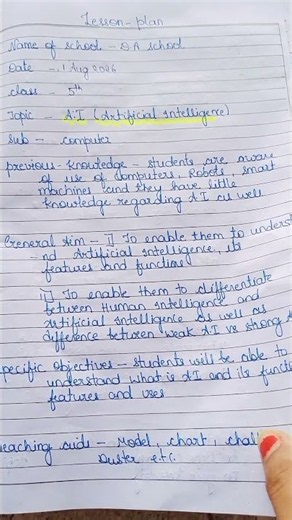 Lesson-plan
Name of school - DA school
Date - 1 Aug 2026
class - 5th
Topic - A.I (Artificial Intelligence)
Sub - computer
previous-knowledge - students are aware
of use of computers, Robots, smart
machines and they have little
knowledge regarding AI as well
General Aim - i] To enable them to underst
-nd Artificial intelligence, its
features and function
ii] To enable them to differentiate
between Human Intelligence and
Artificial Intelligence as well as
difference between weak AI vs strong
pecific objectives - students will be able to
understand what is AI and its funct
features and uses
eaching aids - Model, chart, chal
Duster etc.